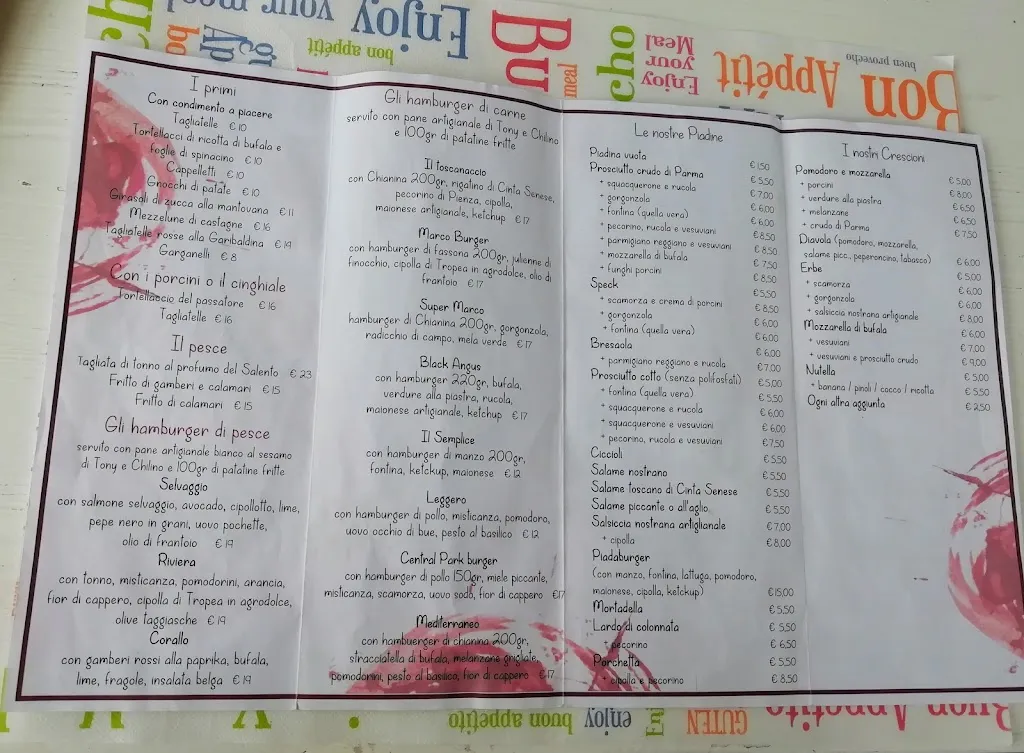 I primi
Con condimento a piacere
Tagliatelle € 10
Tortellacci di ricotta di bufala e
foglie di spinacino € 10
Cappelletti € 10
Gnocchi di patate € 10
Girasoli di zucca alla mantovana € 11
Mezzelune di castagne € 16
Tagliatelle rosse alla Garibaldina € 19
Garganelli € 8
Con i porcini o il cinghiale
Tortellaccio del passatore € 16
Tagliatelle € 16
Il pesce
Tagliata di tonno al profumo del Salento € 23
Fritto di gamberi e calamari € 15
Fritto di calamari € 15
Gli hamburger di pesce
servito con pane artigianale bianco al sesamo
di Tony e Chilino e 100gr di patatine fritte
Selvaggio
con salmone selvaggio, avocado, cipollotto, lime,
pepe nero in grani, uovo pochette,
olio di frantoio € 19
Riviera
con tonno, misticanza, pomodorini, arancia,
fior di cappero, cipolla di Tropea in agrodolce,
olive taggiasche € 19
Corallo
con gamberi rossi alla paprika, bufala,
lime, fragole, insalata belga € 19
Gli hamburger di carne
servito con pane artigianale di Tony e Chilino
e 100gr di patatine fritte
Il toscanaccio
con Chianina 200gr, rigatino di Cinta Senese,
pecorino di Pienza, cipolla,
maionese artigianale, ketchup € 17
Marco Burger
con hamburger di fassona 200gr, julienne di
finocchio, cipolla di Tropea in agrodolce, olio di
frantoio € 17
Super Marco
hamburger di Chianina 200gr, gorgonzola,
radicchio di campo, mela verde € 17
Black Angus
con hamburger 220gr, bufala,
verdure alla piastra, rucola,
maionese artigianale, ketchup € 17
Il Semplice
con hamburger di manzo 200gr,
fontina, ketchup, maionese € 12
Leggero
con hamburger di pollo, misticanza, pomodoro,
uovo occhio di bue, pesto al basilico € 12
Central Park burger
con hamburger di pollo 150gr, miele piccante,
misticanza, scamorza, uovo sodo, fior di cappero €17
Mediterraneo
con hambuerger di chianina 200gr,
stracciatella di bufala, melanzane grigliate,
pomodorini, pesto al basilico, fior di cappero € 17
Le nostre Piadine
Piadina vuota € 1,50
Prosciutto crudo di Parma € 5,50
+ squacquerone e rucola € 7,00
+ gorgonzola € 6,00
+ fontina (quella vera) € 6,00
+ pecorino, rucola e vesuviani € 8,50
+ parmigiano reggiano e vesuviani € 8,50
+ mozzarella di bufala € 7,50
+ funghi porcini € 8,50
Speck € 5,50
+ scamorza e crema di porcini € 8,50
+ gorgonzola € 6,00
+ fontina (quella vera) € 6,00
Bresaola € 6,00
+ parmigiano reggiano e rucola € 7,00
Prosciutto cotto (senza polifosfati) € 5,00
+ fontina (quella vera) € 5,50
+ squacquerone e rucola € 6,00
+ squacquerone e vesuviani € 6,00
+ pecorino, rucola e vesuviani €7,50
Ciccioli € 5,50
Salame nostrano € 5,50
Salame toscano di Cinta Senese € 5,50
Salame piccante o all'aglio € 5,50
Salsiccia nostrana artigianale € 7,00
+ cipolla € 8,00
Piadaburger
(con manzo, fontina, lattuga, pomodoro,
maionese, cipolla, ketchup) €15,00
Mortadella € 5,50
Lardo di colonnata € 5,50
+ pecorino € 6,50
Porchetta € 5,50
+ cipolla e pecorino € 8,50
I nostri Crescioni
Pomodoro e mozzarella € 5,00
+ porcini € 8,00
+ verdure alla piastra € 6,50
+ melanzane € 6,50
+ cruda di Parma € 7,50
Diavola (pomodoro, mozzarella,
salame picc., peperoncino, tabasco) € 6,00
Erbe € 5,00
+ scamorza € 6,00
+ gorgonzola € 6,00
+ salsiccia nostrana artigianale € 8,00
Mozzarella di bufala € 6,00
+ vesuviani € 7,00
+ vesuviani e prosciutto crudo € 9,00
Nutella € 5,00
+ banana / pinoli / cocco / ricotta € 5,50
Ogni altra aggiunta € 2,50
Enjoy
your meal
bon appétit
cho
Enjoy
your
Meal
Bon Appétit
buen provecho
meal
buon appetito
enjoy
bon appétit
GUTEN
Buon Appetito